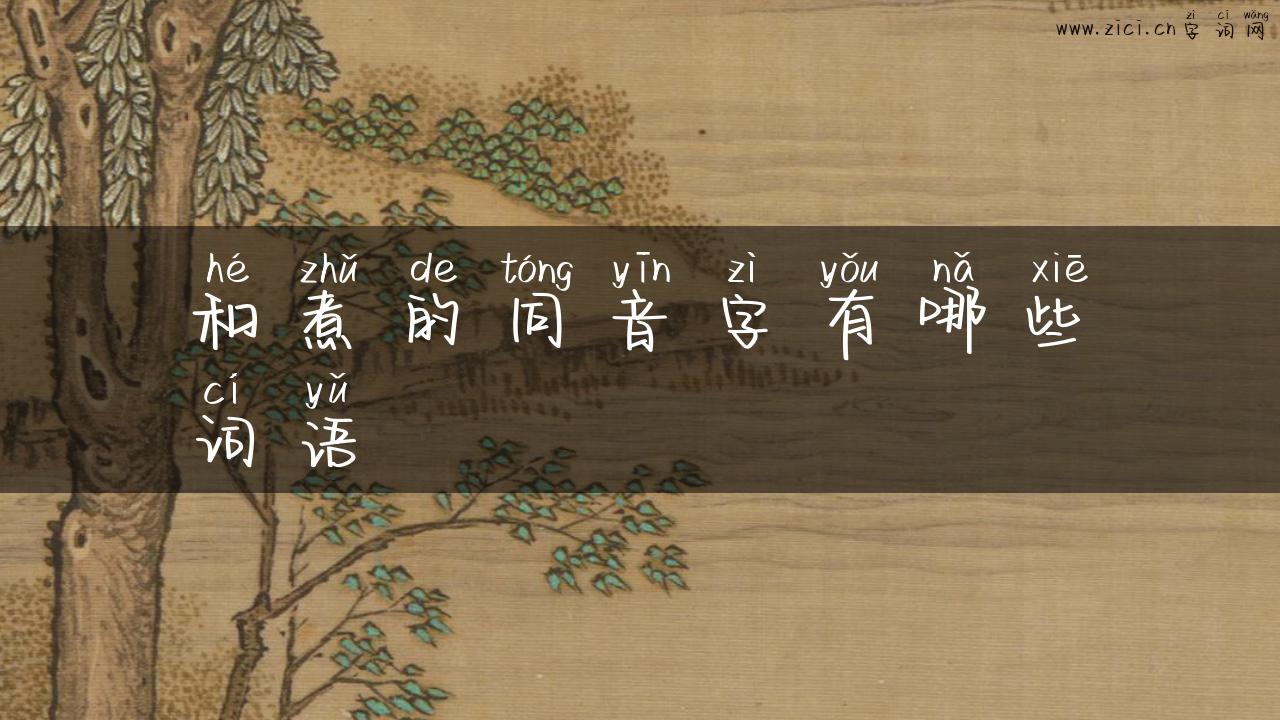 zì cí wǎng
www.zici.cn 字词网
hé zhǔ de tóng yīn zì yǒu nǎ xiē
和煮的同音字有哪些
cí yǔ
词语